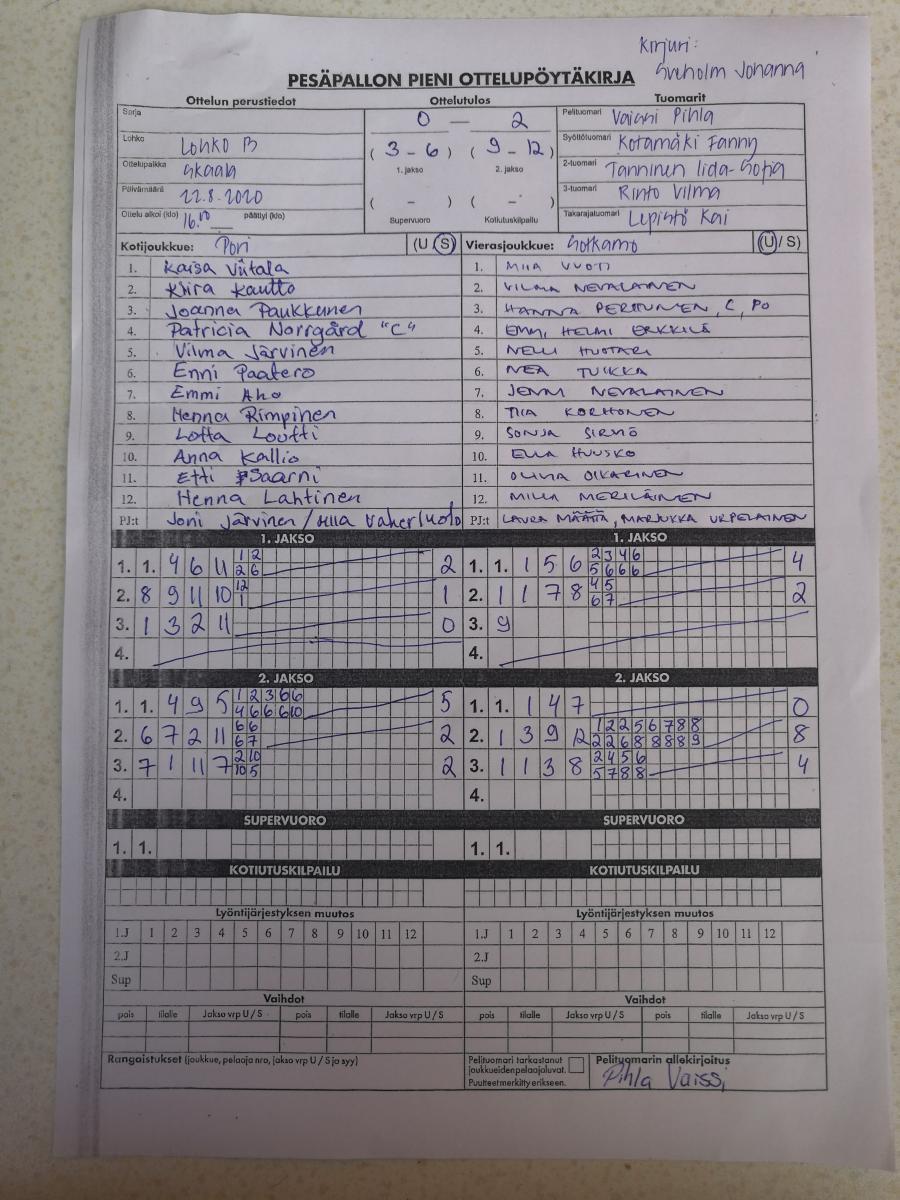 Kirjuri:
Sveholm Johanna
PESÄPALLON PIENI OTTELUPÖYTÄKIRJA
Ottelun perustiedot Ottelutulos Tuomarit
Sarja 0 — 2 Pelituomari Vaissi Pihla
Lohko Lohko B ( 3 - 6 ) ( 9 - 12 ) Syöttötuomari Kotamäki Fanny
Ottelupaikka Skaala 1. jakso 2. jakso 2-tuomari Tanninen Iida-Sofia
Päivämäärä 22.8.2020 ( - ) ( - ) 3-tuomari Rinto Vilma
Ottelu alkoi (klo) 16.00 päättyi (klo) Supervuoro Kotiutuskilpailu Takarajatuomari Lepistö Kai
Kotijoukkue: Pori (U / S) Vierasjoukkue: Sotkamo (U / S)
1. Kaisa Viitala 1. MIIA VUOTI
2. Kiira Kautto 2. VILMA NEVALAINEN
3. Joanna Paukkunen 3. HANNA PERTTUNEN, C, PO
4. Patricia Norrgård "C" 4. EMMI, HELMI ERKKILÄ
5. Vilma Järvinen 5. NELLI HUOTARI
6. Enni Paatero 6. NEA TUIKKA
7. Emmi Aho 7. JENNI NEVALAINEN
8. Henna Rimpinen 8. TIIA KORHONEN
9. Lotta Loutti 9. SONJA SIRVIÖ
10. Anna Kallio 10. ELLA HUUSKO
11. Etti Saarni 11. OLIVIA OIKARINEN
12. Henna Lahtinen 12. MILLA MERILÄINEN
PJ:t Joni Järvinen / PJ:t LAURA MÄÄTTÄ, MARJUKKA URPELAINEN
1. JAKSO 1. JAKSO
1. 1. 4 6 11 1 2 2 1. 1. 1 5 6 2 3 4 6 4
2 6 5 6 6 6
2. 8 9 11 10 12 1 2. 1 1 7 8 4 5 2
1 6 7
3. 1 3 2 11 0 3. 9
4. 4.
2. JAKSO 2. JAKSO
1. 1. 4 9 5 1 2 3 6 6 5 1. 1. 1 4 7 0
4 6 6 6 10
2. 6 7 2 11 6 6 2 2. 1 3 9 12 1 2 2 5 6 7 8 8 8
6 7 2 2 6 8 8 8 8 9
3. 7 1 11 7 2 10 2 3. 1 1 3 8 2 4 5 6 4
10 5 5 7 8 8
4. 4.
SUPERVUORO SUPERVUORO
1. 1. 1. 1.
KOTIUTUSKILPAILU KOTIUTUSKILPAILU
Lyöntijärjestyksen muutos Lyöntijärjestyksen muutos
1.J 1 2 3 4 5 6 7 8 9 10 11 12 1.J 1 2 3 4 5 6 7 8 9 10 11 12
2.J 2.J
Sup Sup
Vaihdot Vaihdot
pois tilalle Jakso vrp U / S pois tilalle Jakso vrp U / S pois tilalle Jakso vrp U / S pois tilalle Jakso vrp U / S
Rangaistukset (joukkue, pelaaja nro, jakso vrp U / S ja syy) Pelituomari tarkastanut Pelituomarin allekirjoitus
joukkueiden pelaajaluvat.
Puutteet merkitty erikseen. Pihla Vaissi